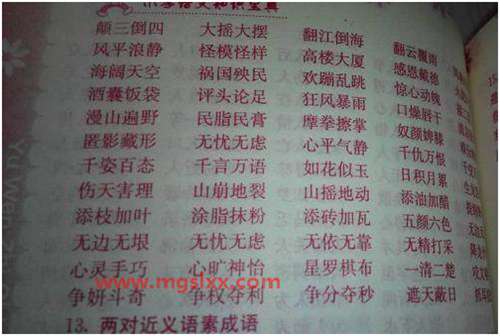 小学语文知识宝典
颠三倒四 大摇大摆 翻江倒海 翻云覆雨
风平浪静 怪模怪样 高楼大厦 感恩戴德
海阔天空 祸国殃民 欢蹦乱跳 惊心动魄
酒囊饭袋 评头论足 狂风暴雨 口燥唇干
漫山遍野 民脂民膏 摩拳擦掌 奴颜婢膝
匿影藏形 无忧无虑 心平气静 千仇万恨
千姿百态 千言万语 如花似玉 日积月累
伤天害理 山崩地裂 山摇地动 添油加醋
添枝加叶 涂脂抹粉 添砖加瓦 五颜六色
无边无垠 无忧无虑 无依无靠 无精打采
心灵手巧 心旷神怡 星罗棋布 一清二楚
www.mgslxx.com
争妍斗奇 争权夺利 争分夺秒 遮天蔽日
13. 两对近义语素成语